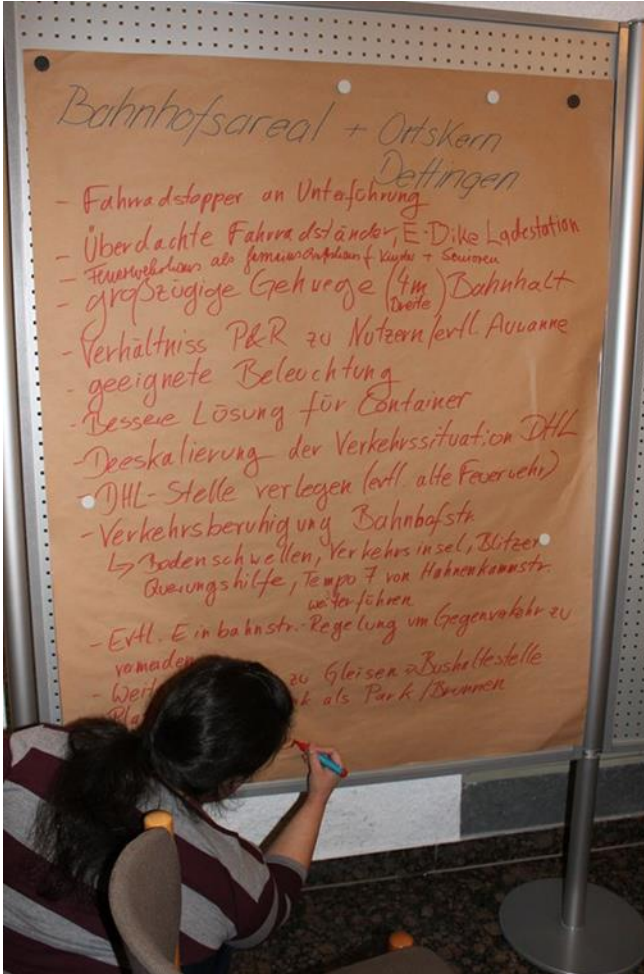 Bahnhofsareal + Ortskern
Dettingen
- Fahrradstopper an Unterführung
- Überdachte Fahrradständer, E-Bike Ladestation
- Feuerwehrhaus als Gemeinschaftshaus f. Kinder + Senioren
- großzügige Gehwege (4m Breite) Bahnhalt
- Verhältniss P&R zu Nutzern/evtl.
- geeignete Beleuchtung
- Bessere Lösung für Container
- Deeskalierung der Verkehrssituation DHL
- DHL-Stelle verlegen (evtl. alte Feuerwehr)
- Verkehrsberuhigung Bahnhofstr.
↳ Bodenschwellen, Verkehrsinsel, Blitzer
Querungshilfe, Tempo 7 von Hahnenkammstr.
weiterführen
- Evtl. Einbahnstr.-Regelung um Gegenverkehr zu
vermeiden
- zu Gleisen Bushaltestelle
als Park/Brunnen